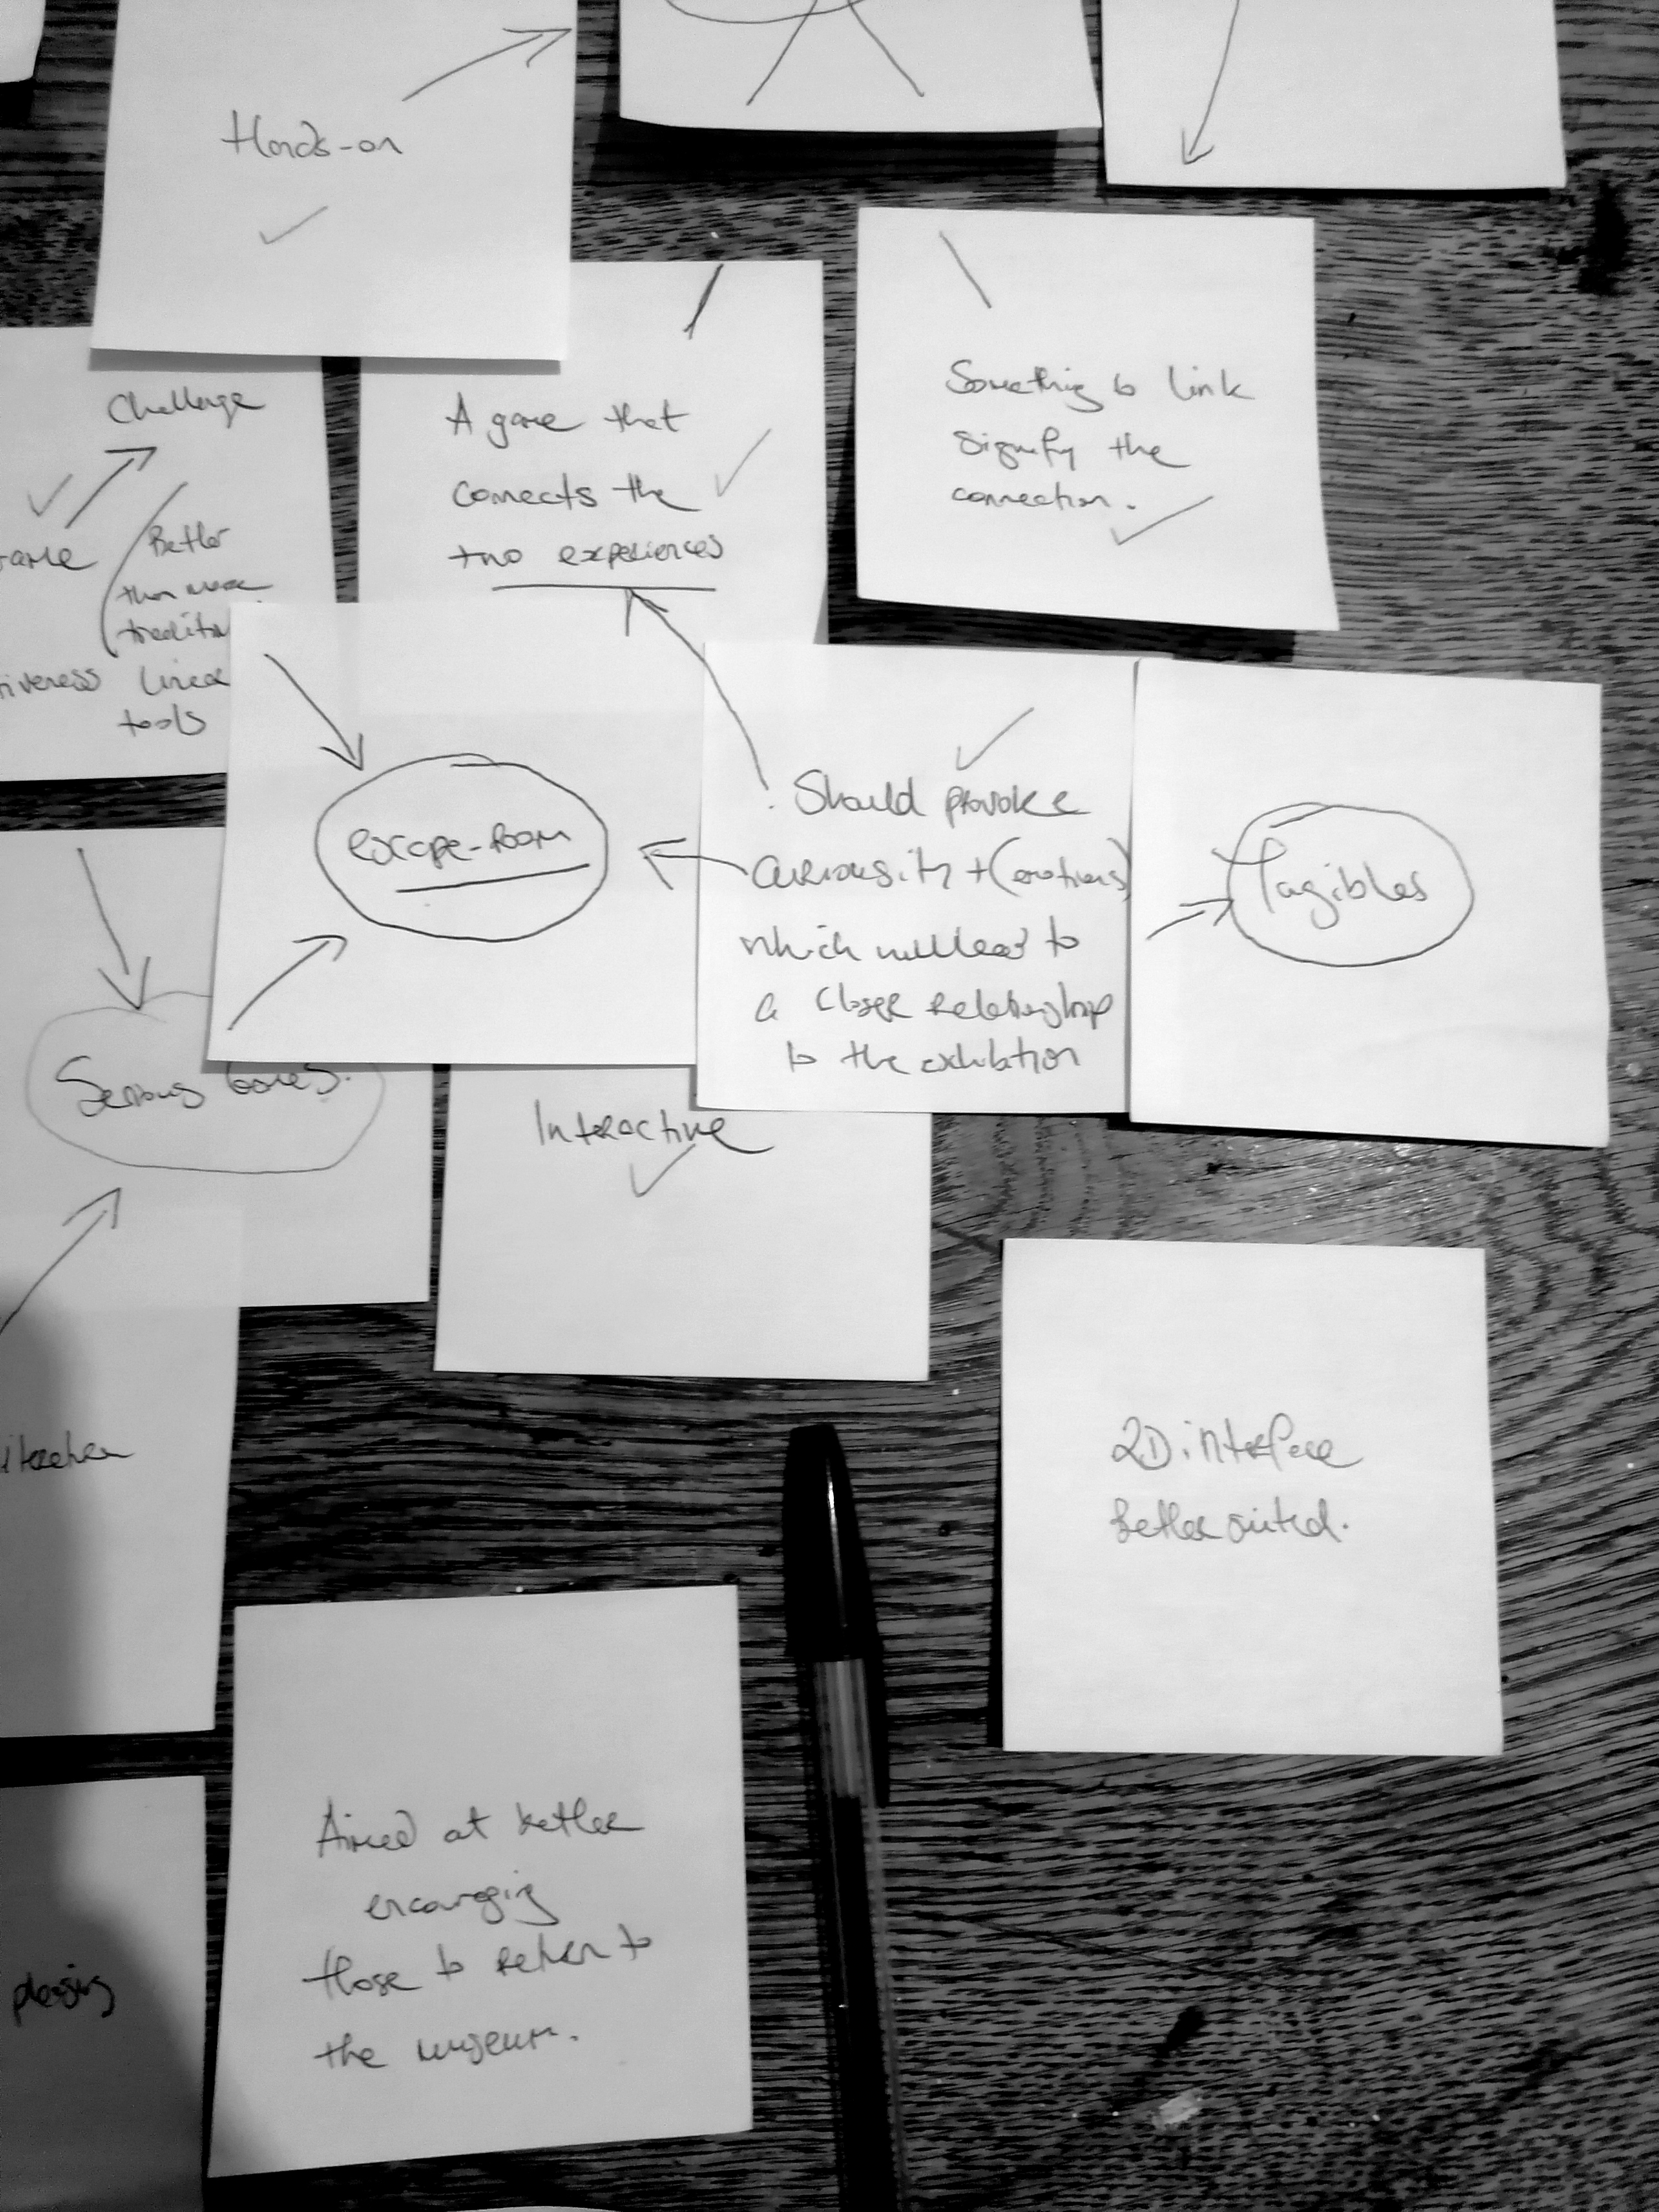 Hands-on
Challenge
Better
than more
traditio
linear
tools
iveness
A game that
connects the
two experiences
Something to link
signify the
connection.
escape-room
Should provoke
curiousity + (emotions)
which will lead to
a closer relationship
to the exhibition
Tagibles
Serious Games.
Interactive
2D interface
better suited.
Aimed at better
encouraging
those to return to
the museum.
pleasing